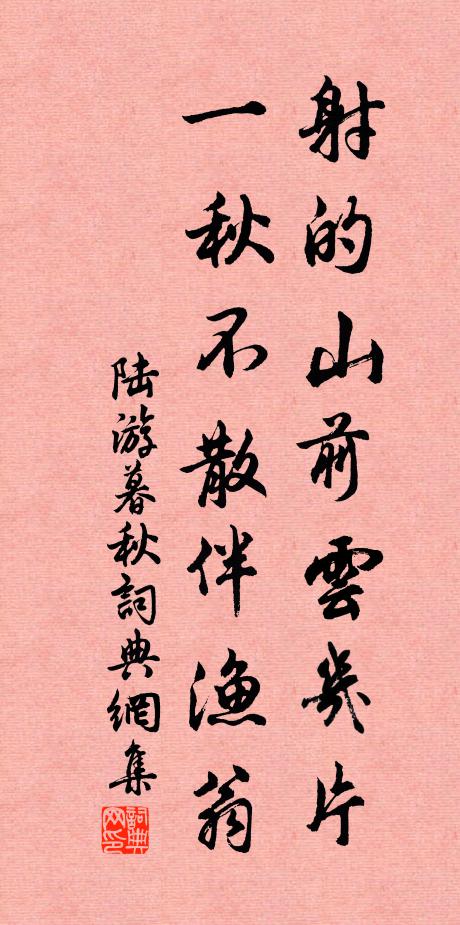 射的山前雲幾片
一秋不散伴漁翁
陸游暮秋詞典網集
詞典网印